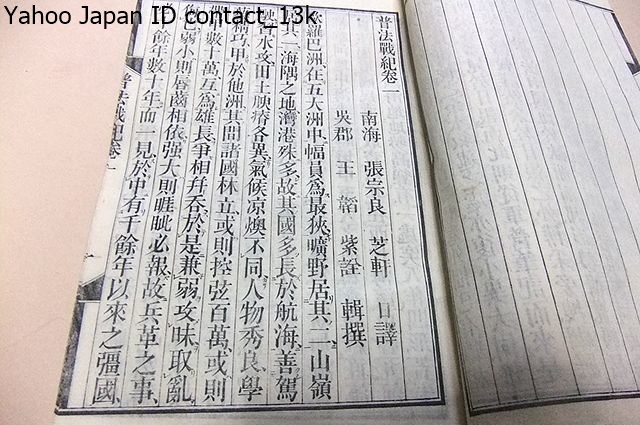 Yahoo Japan ID contact_13k
普法戰紀卷一
南海 張宗良 芝軒 口譯
吳郡 王韜 紫詮 輯撰
歐羅巴洲、在五大洲中、幅員爲最狹、曠野居其二、山嶺
其一、海隅之地、灣港殊多、故其國多長於航海、善駕
水攻、田土腴瘠各異、氣候凉燠不同、人物秀良、學
稱甲於他洲、其間諸國林立、或則控弦百萬、或則
數十萬、互爲雄長、爭相幷吞、於是兼弱攻昧、取亂
弱小則脣齒相依、强大則睚眦必報、故兵革之事、
餘年數十年而一見、於中有千餘年以來之彊國、
普法戰紀卷一